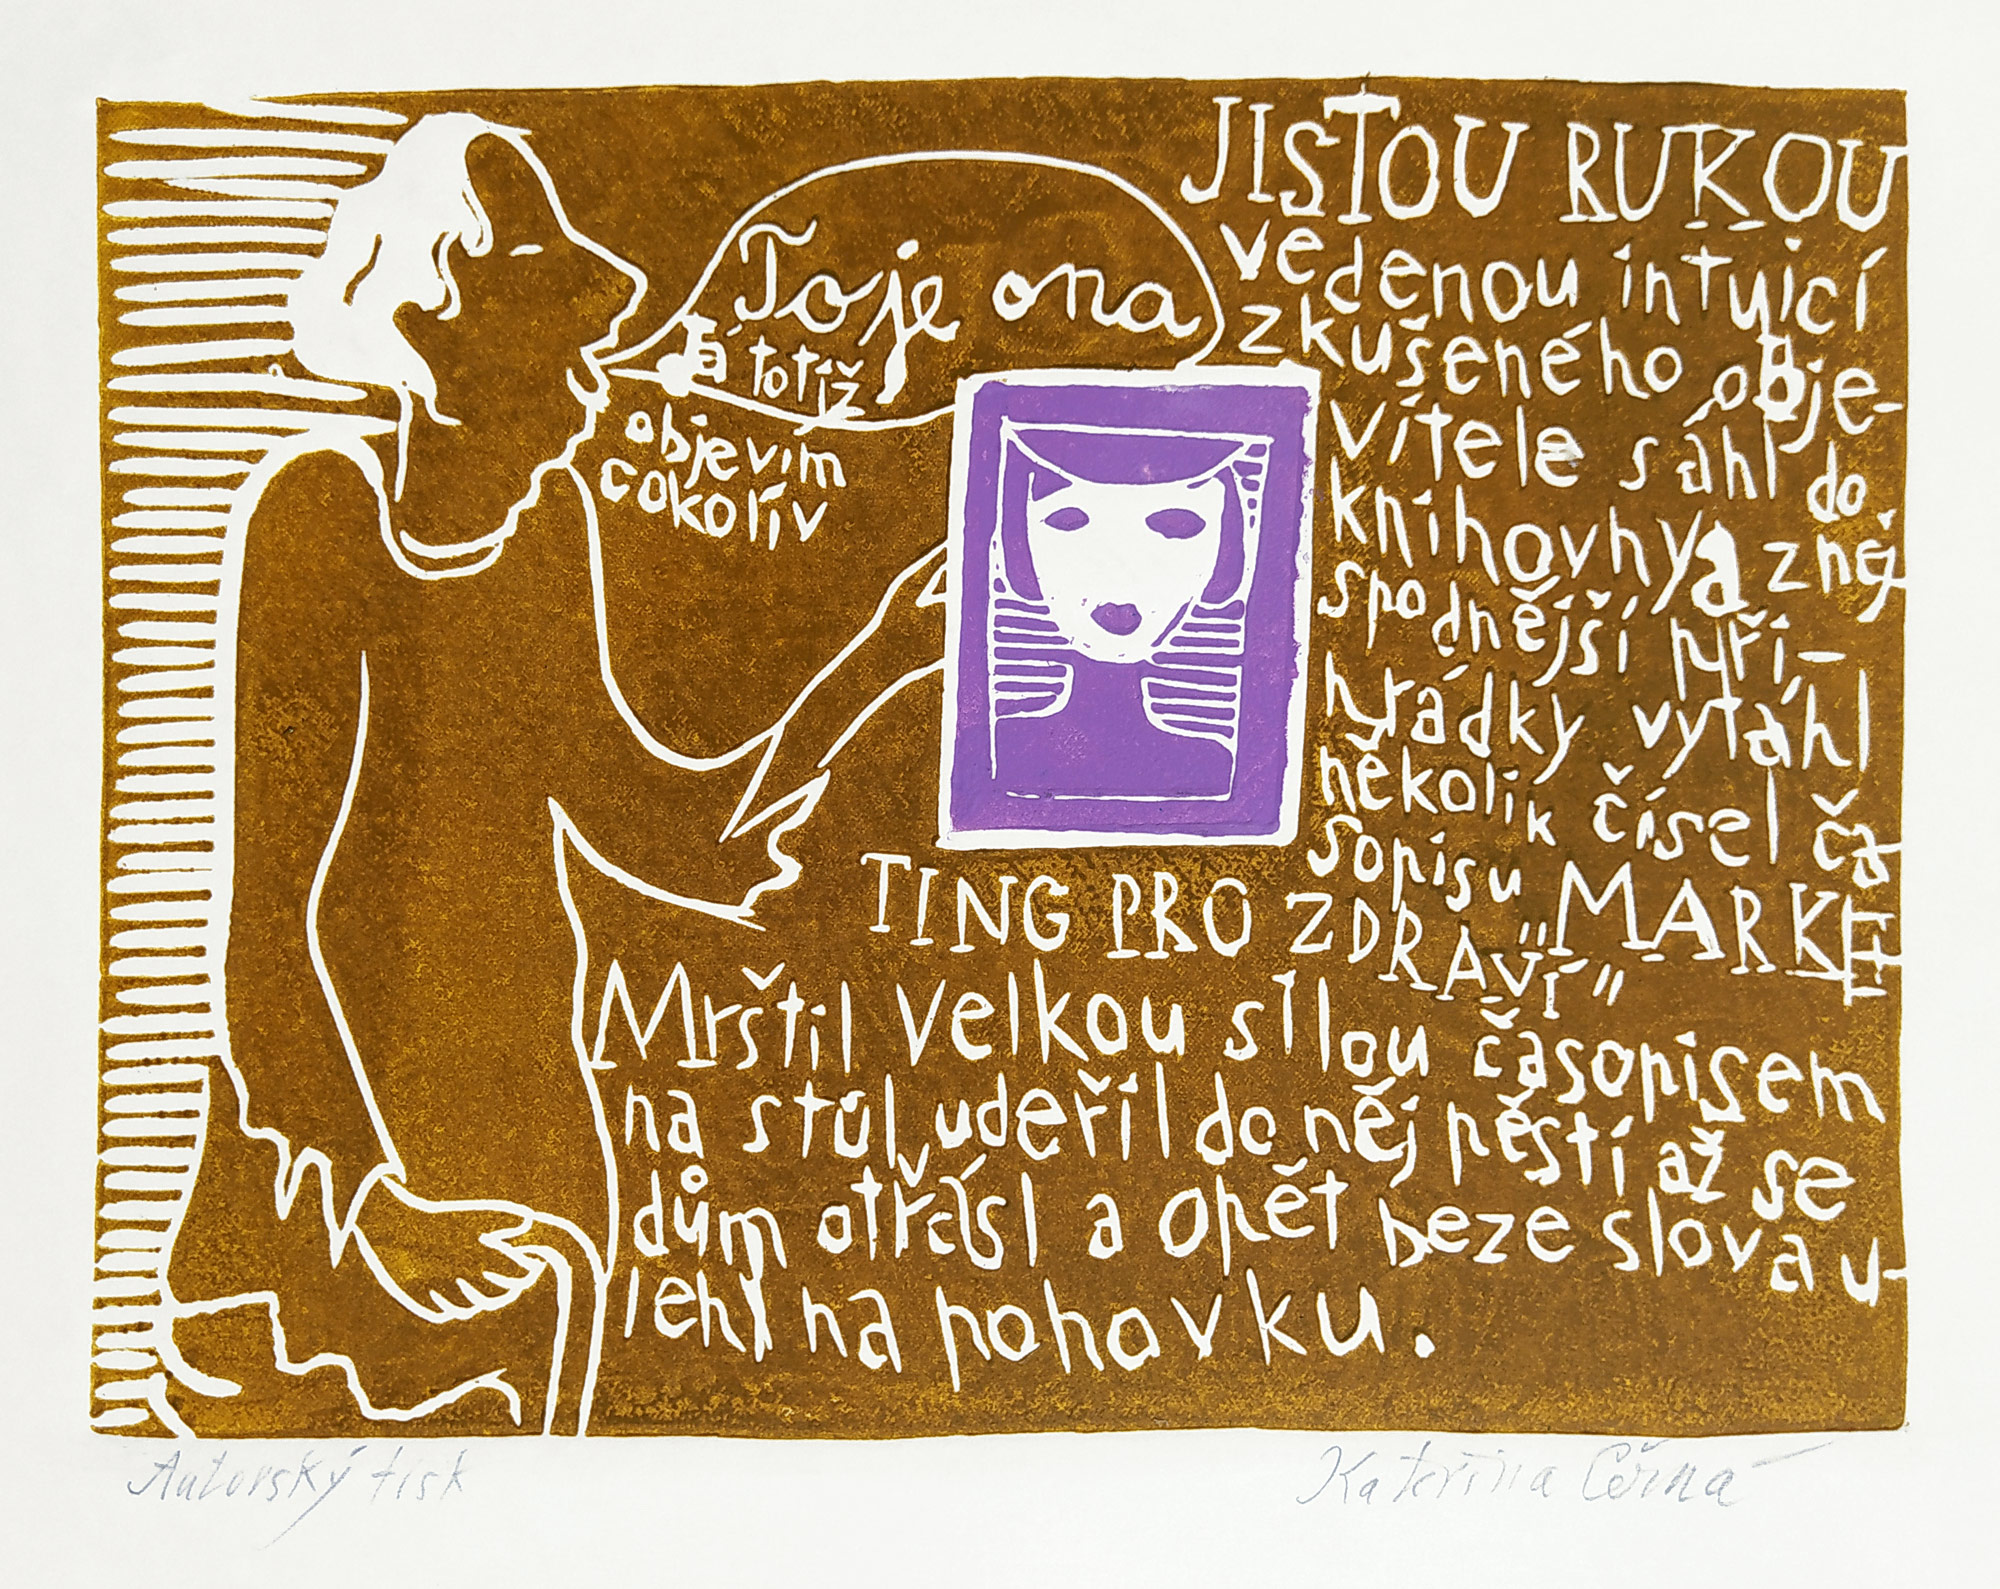 To je ona
Já totiž
objevím
cokolív
JISTOU RUKOU
vedenou intuicí
zkušeného obje-
vítele sáhl do
knihovny a z něj
spodnější při-
hrádky vytáhl
několik čísel ča
sopisu "MARKE
TING PRO ZDRAVÍ"
Mrštil velkou silou časopisem
na stůl, udeřil do něj pěstí až se
dům otřásl a opět beze slova u-
lehl na pohovku.
Autorský tisk
Kateřina Černá